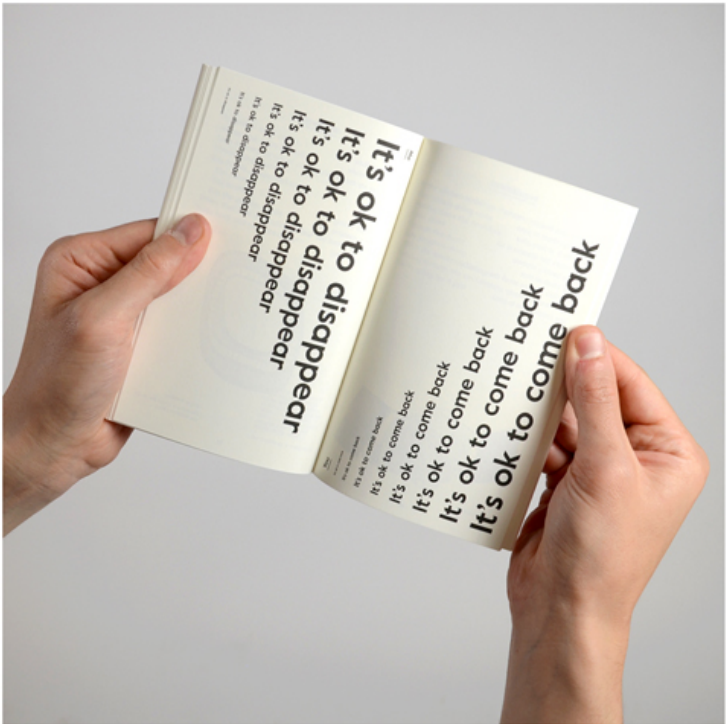 It's ok to disappear
It's ok to disappear
It's ok to disappear
It's ok to disappear
It's ok to disappear
It's ok to disappear
It's ok to disappear
It's ok to come back
It's ok to come back
It's ok to come back
It's ok to come back
It's ok to come back
It's ok to come back
It's ok to come back